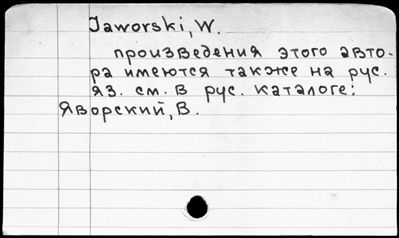 Jaworski, W.
произведения этого авто-
ра имеются также на рус.
яз. см. в рус. каталоге:
Яворский, В.